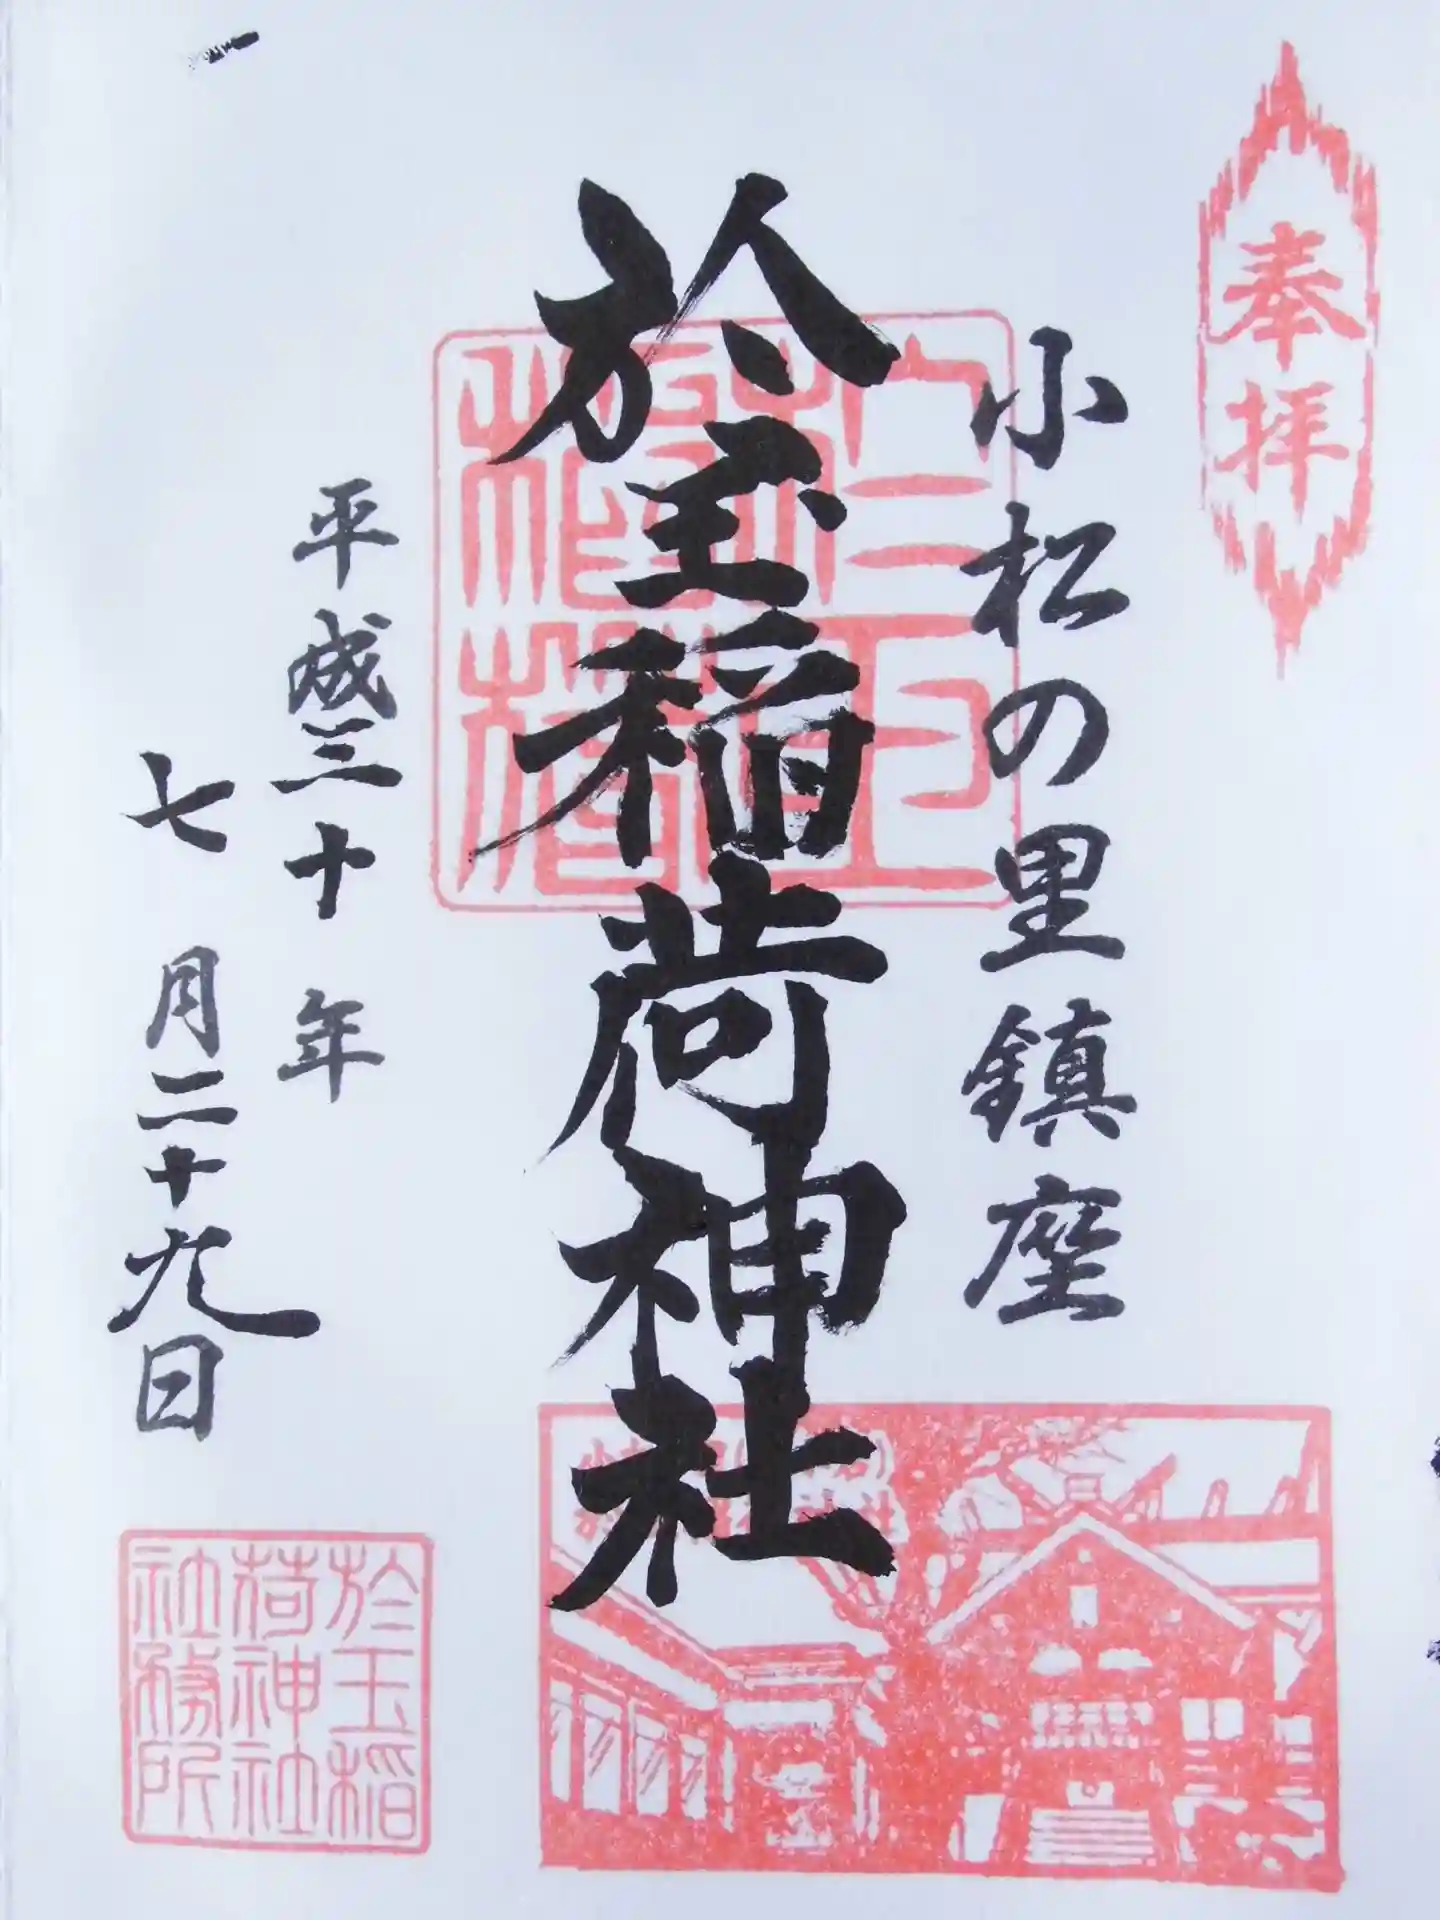 奉拝
小松の里鎮座
於玉稲荷神社
平成三十年
七月二十九日
於玉稲
荷神社
社務所
正一位